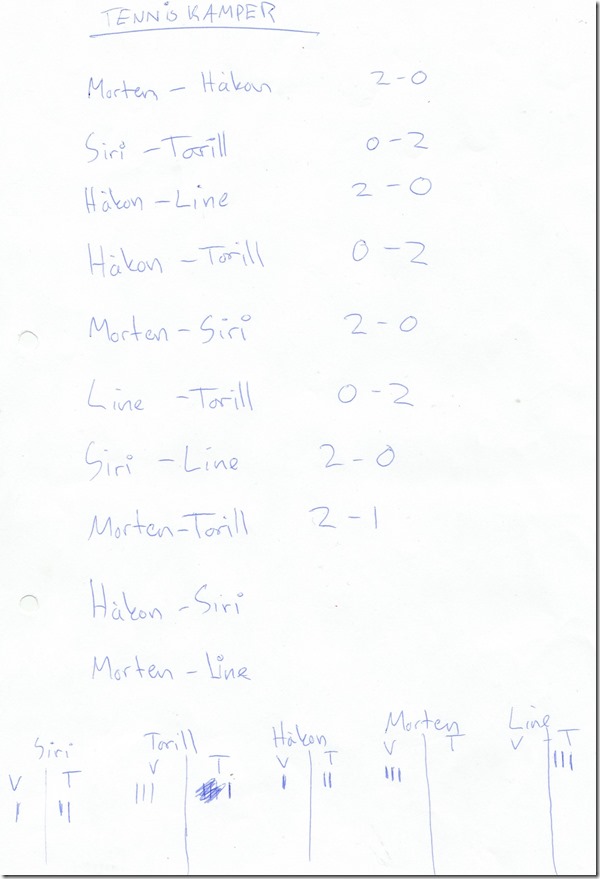 TENNIS KAMPER
Morten - Håkon 2-0
Siri - Torill 0-2
Håkon - Line 2-0
Håkon - Torill 0-2
Morten - Siri 2-0
Line - Torill 0-2
Siri - Line 2-0
Morten-Torill 2-1
Håkon - Siri
Morten - Line
Siri Torill Håkon Morten Line
V T V T V T V T V T
I II III I I II III III